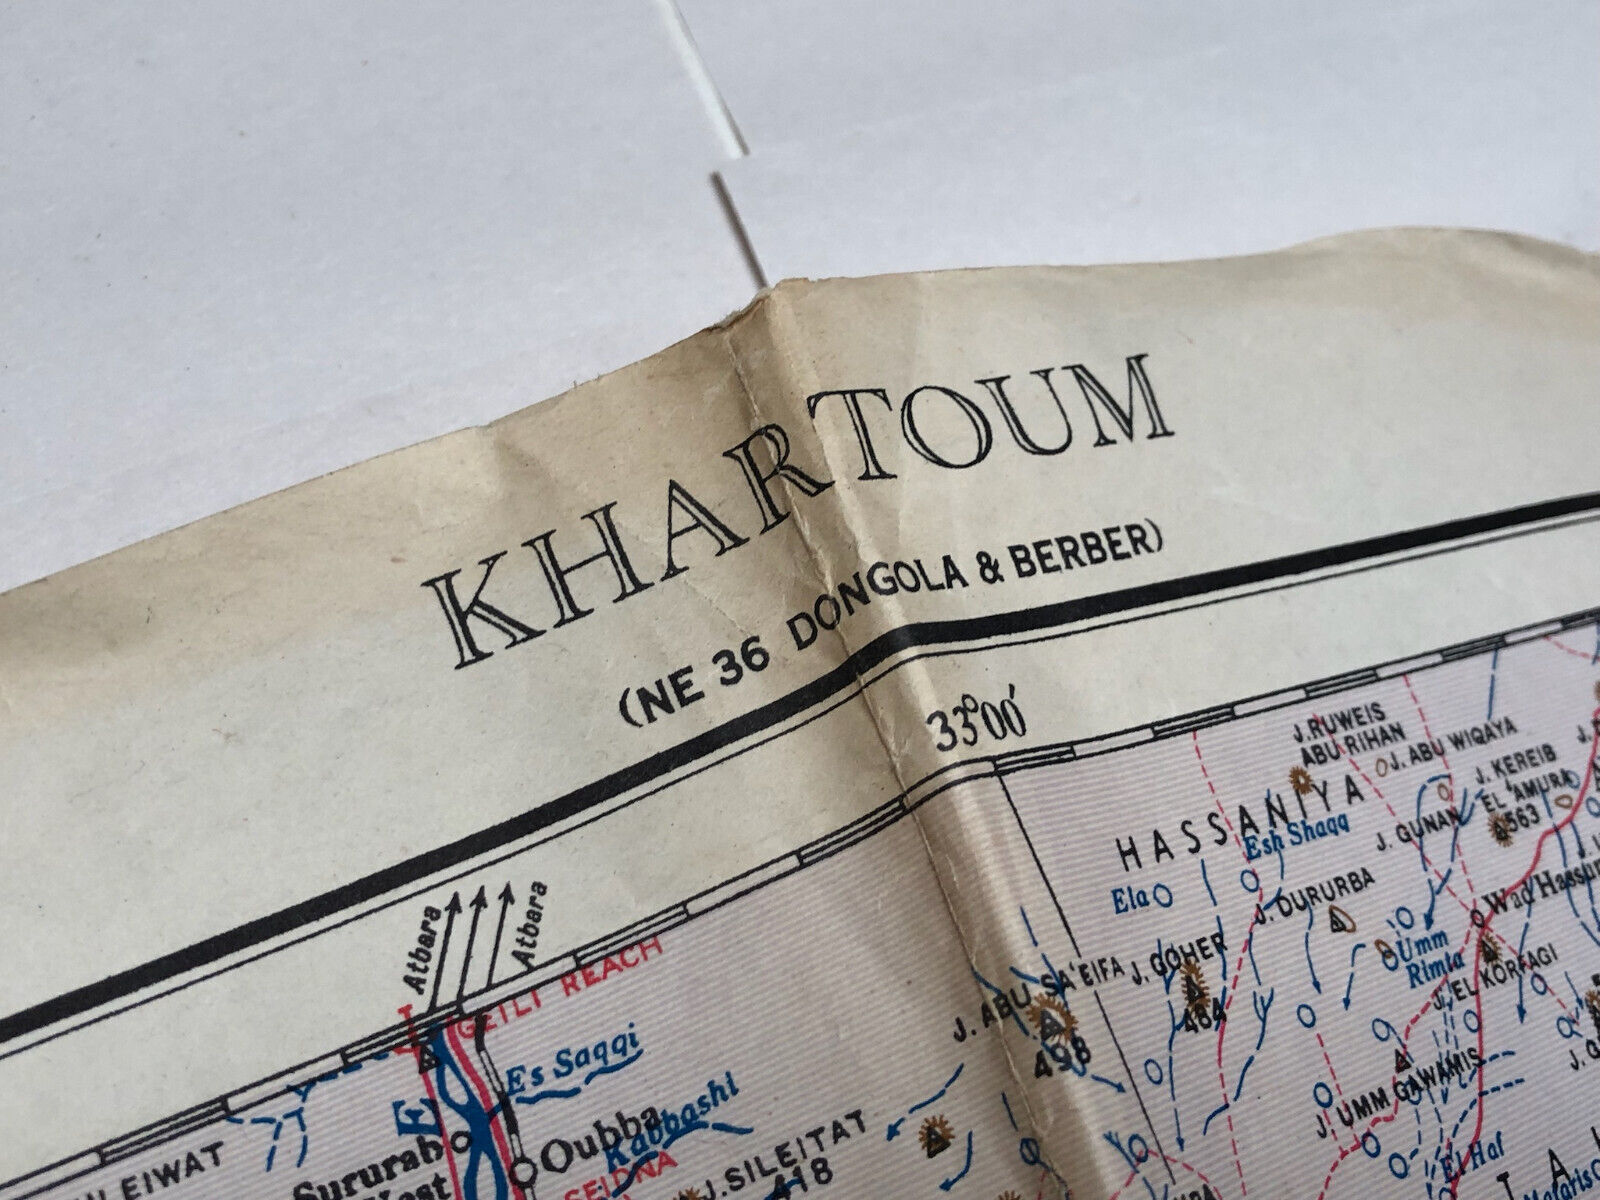 KHARTOUM
(NE 36 DONGOLA & BERBER)
33°00'
J. RUWEIS
ABU RIHAN
J. ABU WIQAYA
J. KEREIB
EL 'AMURA
563
HASSANIYA
Esh Shaqq
J. GUNAN
Ela
J. DURURBA
Wad Hassun
Atbara
Atbara
GEILI REACH
Umm
Rimta
J. EL KORFAGI
J. ABU SA'EIFA
J. GOHER
484
498
Es Saqqi
J. UMM GAWAMIS
Rabbashi
Qubba
Sururab
SEIDNA
J. SILEITAT
418
EIWAT
El Haf